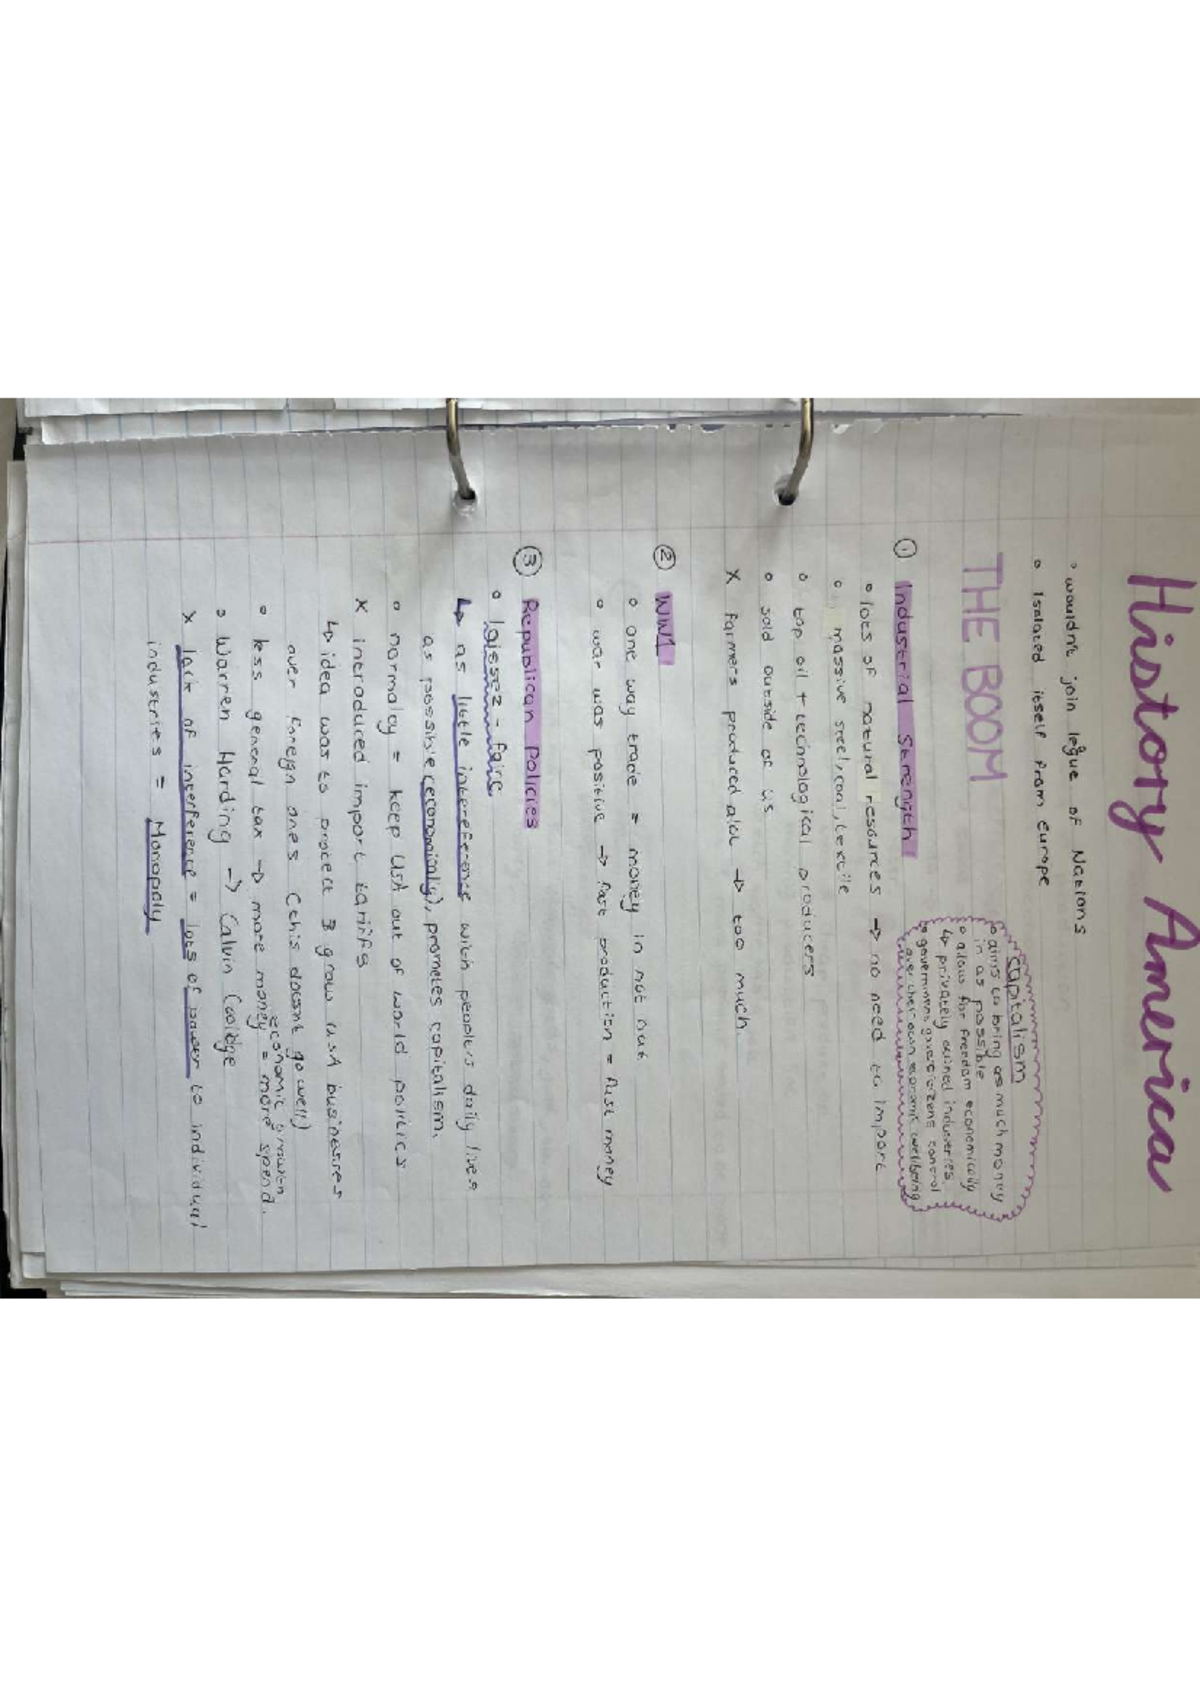 History America
• wouldn't join legue of Nations
• Isolated itself from Europe
THE BOOM
capitalism
• aims to bring as much money
in as possible
• allow for freedom economically
↳ privately owned industries.
• government gives citizens control
over their own economic wellbeing
① Industrial Strength
• lots of natural resources → no need to import
• massive steel, coal, textile
• top oil + technological producers
• sold outside of US
X farmers produced alot → too much.
② WW1
• one way trade = money in not out
• war was positive → fast production = fast money
③ Republican Policies
• laissez-faire
↳ as little intereference with people's daily lives
as possible (economically), prometes capitalism.
• normalcy = keep USA out of world politics
X introduced import tariffs
↳ idea was to protect & grow USA businesses
over foreign ones (this doesnt go well)
economic growth
• less general tax → more money = more spend.
• Warren Harding → Calvin Coolidge
X lack of interference = lots of power to individual
industries = Monopoly